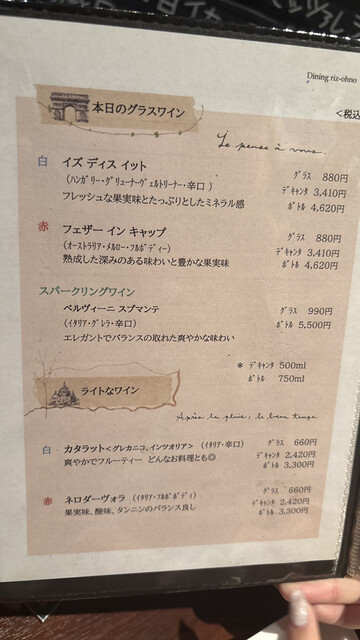 Dining riz-ohno
<税込
本日のグラスワイン
Le pense à vous.
白 イズ ディス イット グラス 880円
(ハンガリー・グリューナーヴェルトリーナー・辛口) デキャンタ 3,410円
フレッシュな果実味とたっぷりとしたミネラル感 ボトル 4,620円
赤 フェザー イン キャップ グラス 880円
(オーストラリア・メルロー・フルボディー) デキャンタ 3,410円
熟成した深みのある味わいと豊かな果実味 ボトル 4,620円
スパークリングワイン
ベルヴィーニ スプマンテ グラス 990円
(イタリア・グレラ・辛口) ボトル 5,500円
エレガントでバランスの取れた爽やかな味わい
* デキャンタ 500ml
ボトル 750ml
ライトなワイン
Après la pluie, le beau temps
白 カタラット<グレカニコ、インツオリア> (イタリア・辛口) グラス 660円
爽やかでフルーティー どんなお料理とも◎ デキャンタ 2,420円
ボトル 3,300円
赤 ネロダーヴォラ (イタリア・フルボディ) グラス 660円
果実味、酸味、タンニンのバランス良し デキャンタ 2,420円
ボトル 3,300円